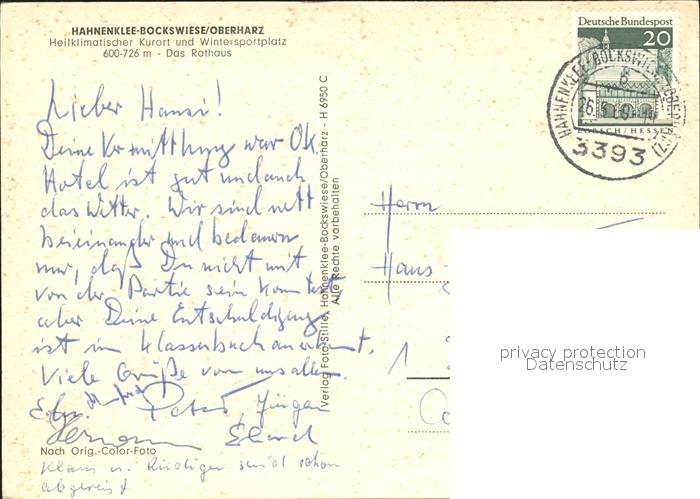 HAHNENKLEE-BOCKSWIESE/OBERHARZ
Heilklimatischer Kurort und Wintersportplatz
600-726 m - Das Rathaus
Lieber Hansi!
Deine Vermittlung war OK.
Hotel ist gut und auch
das Wetter. Wir sind nett
beieinander und bedauern
nur, daß Du nicht mit
von der Partie sein konntest
aber Deine Entschuldigung
ist im Klassenbuch anerkannt.
Viele Grüße von uns allen.
Manfred Peter, Jürgen
Hermann
Nach Orig.-Color-Foto
Klaus u. Rüdiger sind schon
abgereist
Verlag Foto-Stille, Hahnenklee-Bockswiese/Oberharz - H 6950 C
Alle Rechte vorbehalten
Deutsche Bundespost
20
LORSCH/HESSEN
HAHNENKLEE-BOCKSWIESE
3393
Herrn
Hans-
1
privacy protection
Datenschutz